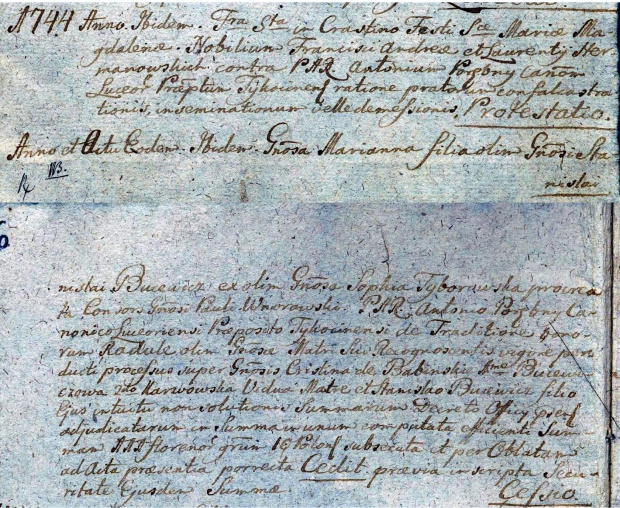 A 1744 Anno Ibidem. Fra Sta in Crastino Festi Sce Mariæ Ma
gdalenæ. Nobilium Francisci Andreæ et Laurenty Her
manowskich contra P.A.R. Antonium Porębny Canon
Luceor Præptum Tykocinens ratione pratorum confalcastra
tionis, inseminationum velle demessionis. Protestatio.
Anno et Actu Eodem. Ibidem. Gnosa Marianna filia olim Gnosi Sta
nislai
nislai Bucewicz ex olim Gnosa Sophia Tyborowska procrea
ta Consors Gnosi Pauli Wnorowski. P.A.R. Antonio Porębny Ca
nonico Luceoriensi Præposito Tykocinensi de Traditione bono
rum Radule olim Gnosæ Matri Suæ Recognoscentis vigore con
ducti processus super Gnosis Cristina de Babinski 1mo Bucew
czowa 2do Karwowska Vidua Matre et Stanislao Bucewicz filio
Ejus intuitu non solutionis Summarum Decreto Officy psens
adjudicatarum in Summa in unum computata efficienti Sum
mam flrenor 1616 subsecuta et per Oblatam
ad Acta præsentia porrecta Cedit prævia inscripta Secu
ritate Ejusdem Summæ Cessio